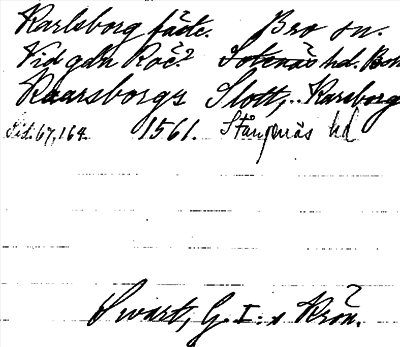 Karlsborg fäste. Bro sn.
Vid gdn Roë? Sotenäs hd. Boh
Kaarsborgs Slott, Karsborg
Sid. 67, 164. 1561. Stångenäs hd
Swart, G. I:s Krön.